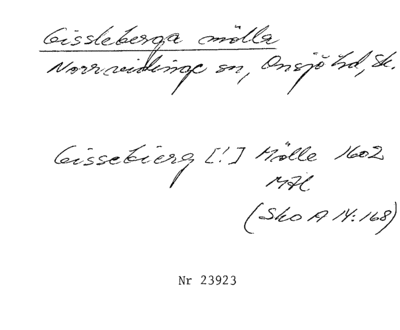 Gissleberga mölla
Norrvidinge sn, Onsjö hd, Sk.
Gissebierg [!] Mölle 1602
(SkoA 14:168)
Nr 23923